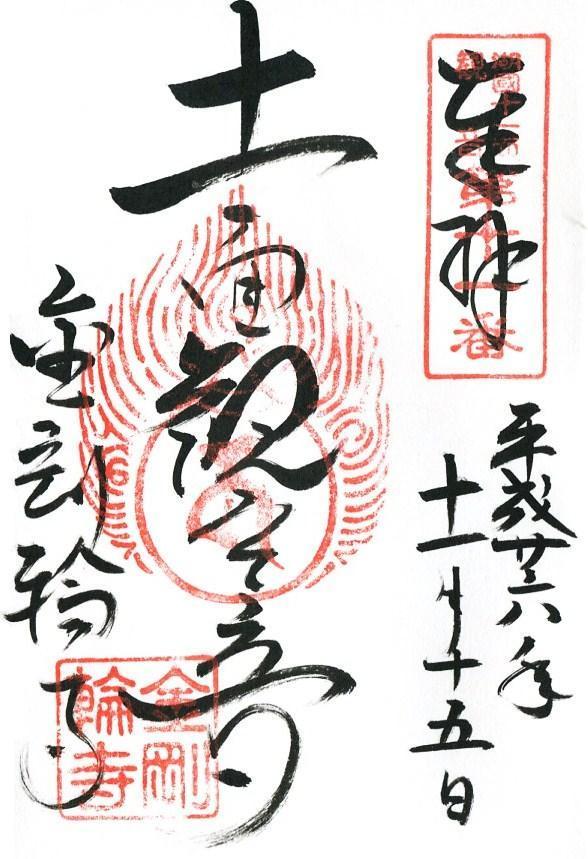 奉拝
湖國十一面
観音
第十一番
平成廿六年
十一月十五日
十一面観世音
金剛輪寺
金剛
輪寺